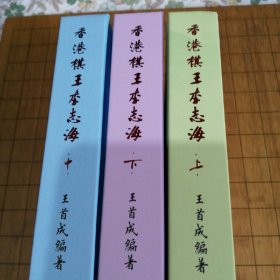 香港棋王李志海·中·
王首成編著
香港棋王李志海·下·
王首成編著
香港棋王李志海·上·
王首成編著